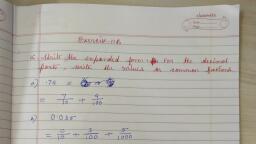 classmate
Date
Page
Exercise-11B
1. Write the expanded form. For the decimal
parts, write the values as common fractions.
a) .79 =
= 7/10 + 9/100
b) 0.035
= 0/10 + 3/100 + 5/1000